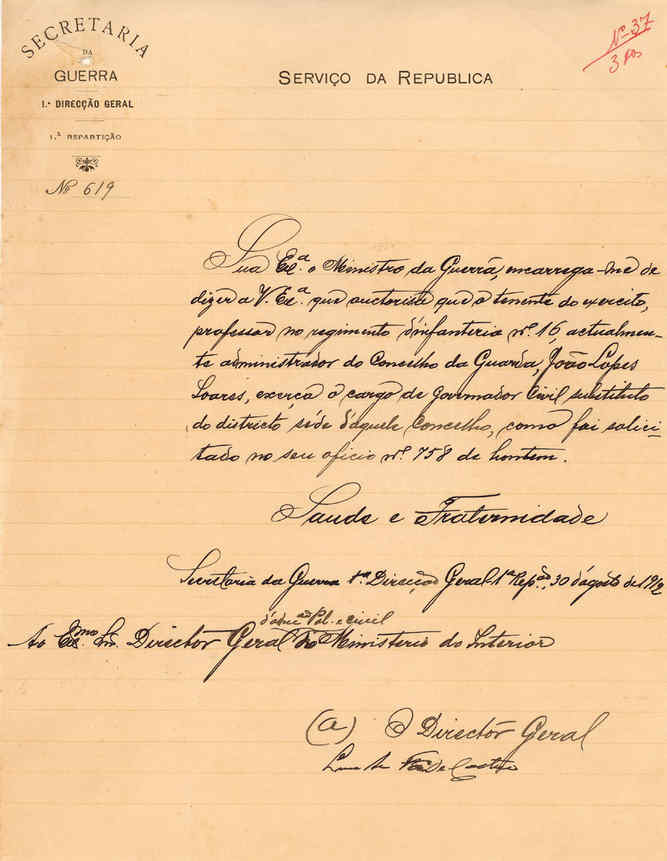 SECRETARIA
DA
GUERRA
1.ª DIRECÇÃO GERAL
1.ª REPARTIÇÃO
Nº 619
SERVIÇO DA REPUBLICA
Nº 37
3
Sua Exª. o Ministro da Guerra, encarrega-me de
dizer a V. Exª. que auctorisa, que o tenente do exercito,
professor no regimento d'infanteria nº. 16, actualmen-
te administrador do Concelho da Guarda, João Lopes
Soares, exerça o cargo de Governador Civil substituto
do districto séde d'aquele Concelho, como foi solici-
tado no seu oficio nº. 758 de hontem.
Saude e Fraternidade
Secretaria da Guerra 1ª Direcção Geral 1ª Repão., 30 d'agosto de 1912
d'admão Pol. e civil
Ao Exmo. Snr. Director Geral do Ministerio do Interior
(a) O Director Geral
de Castro